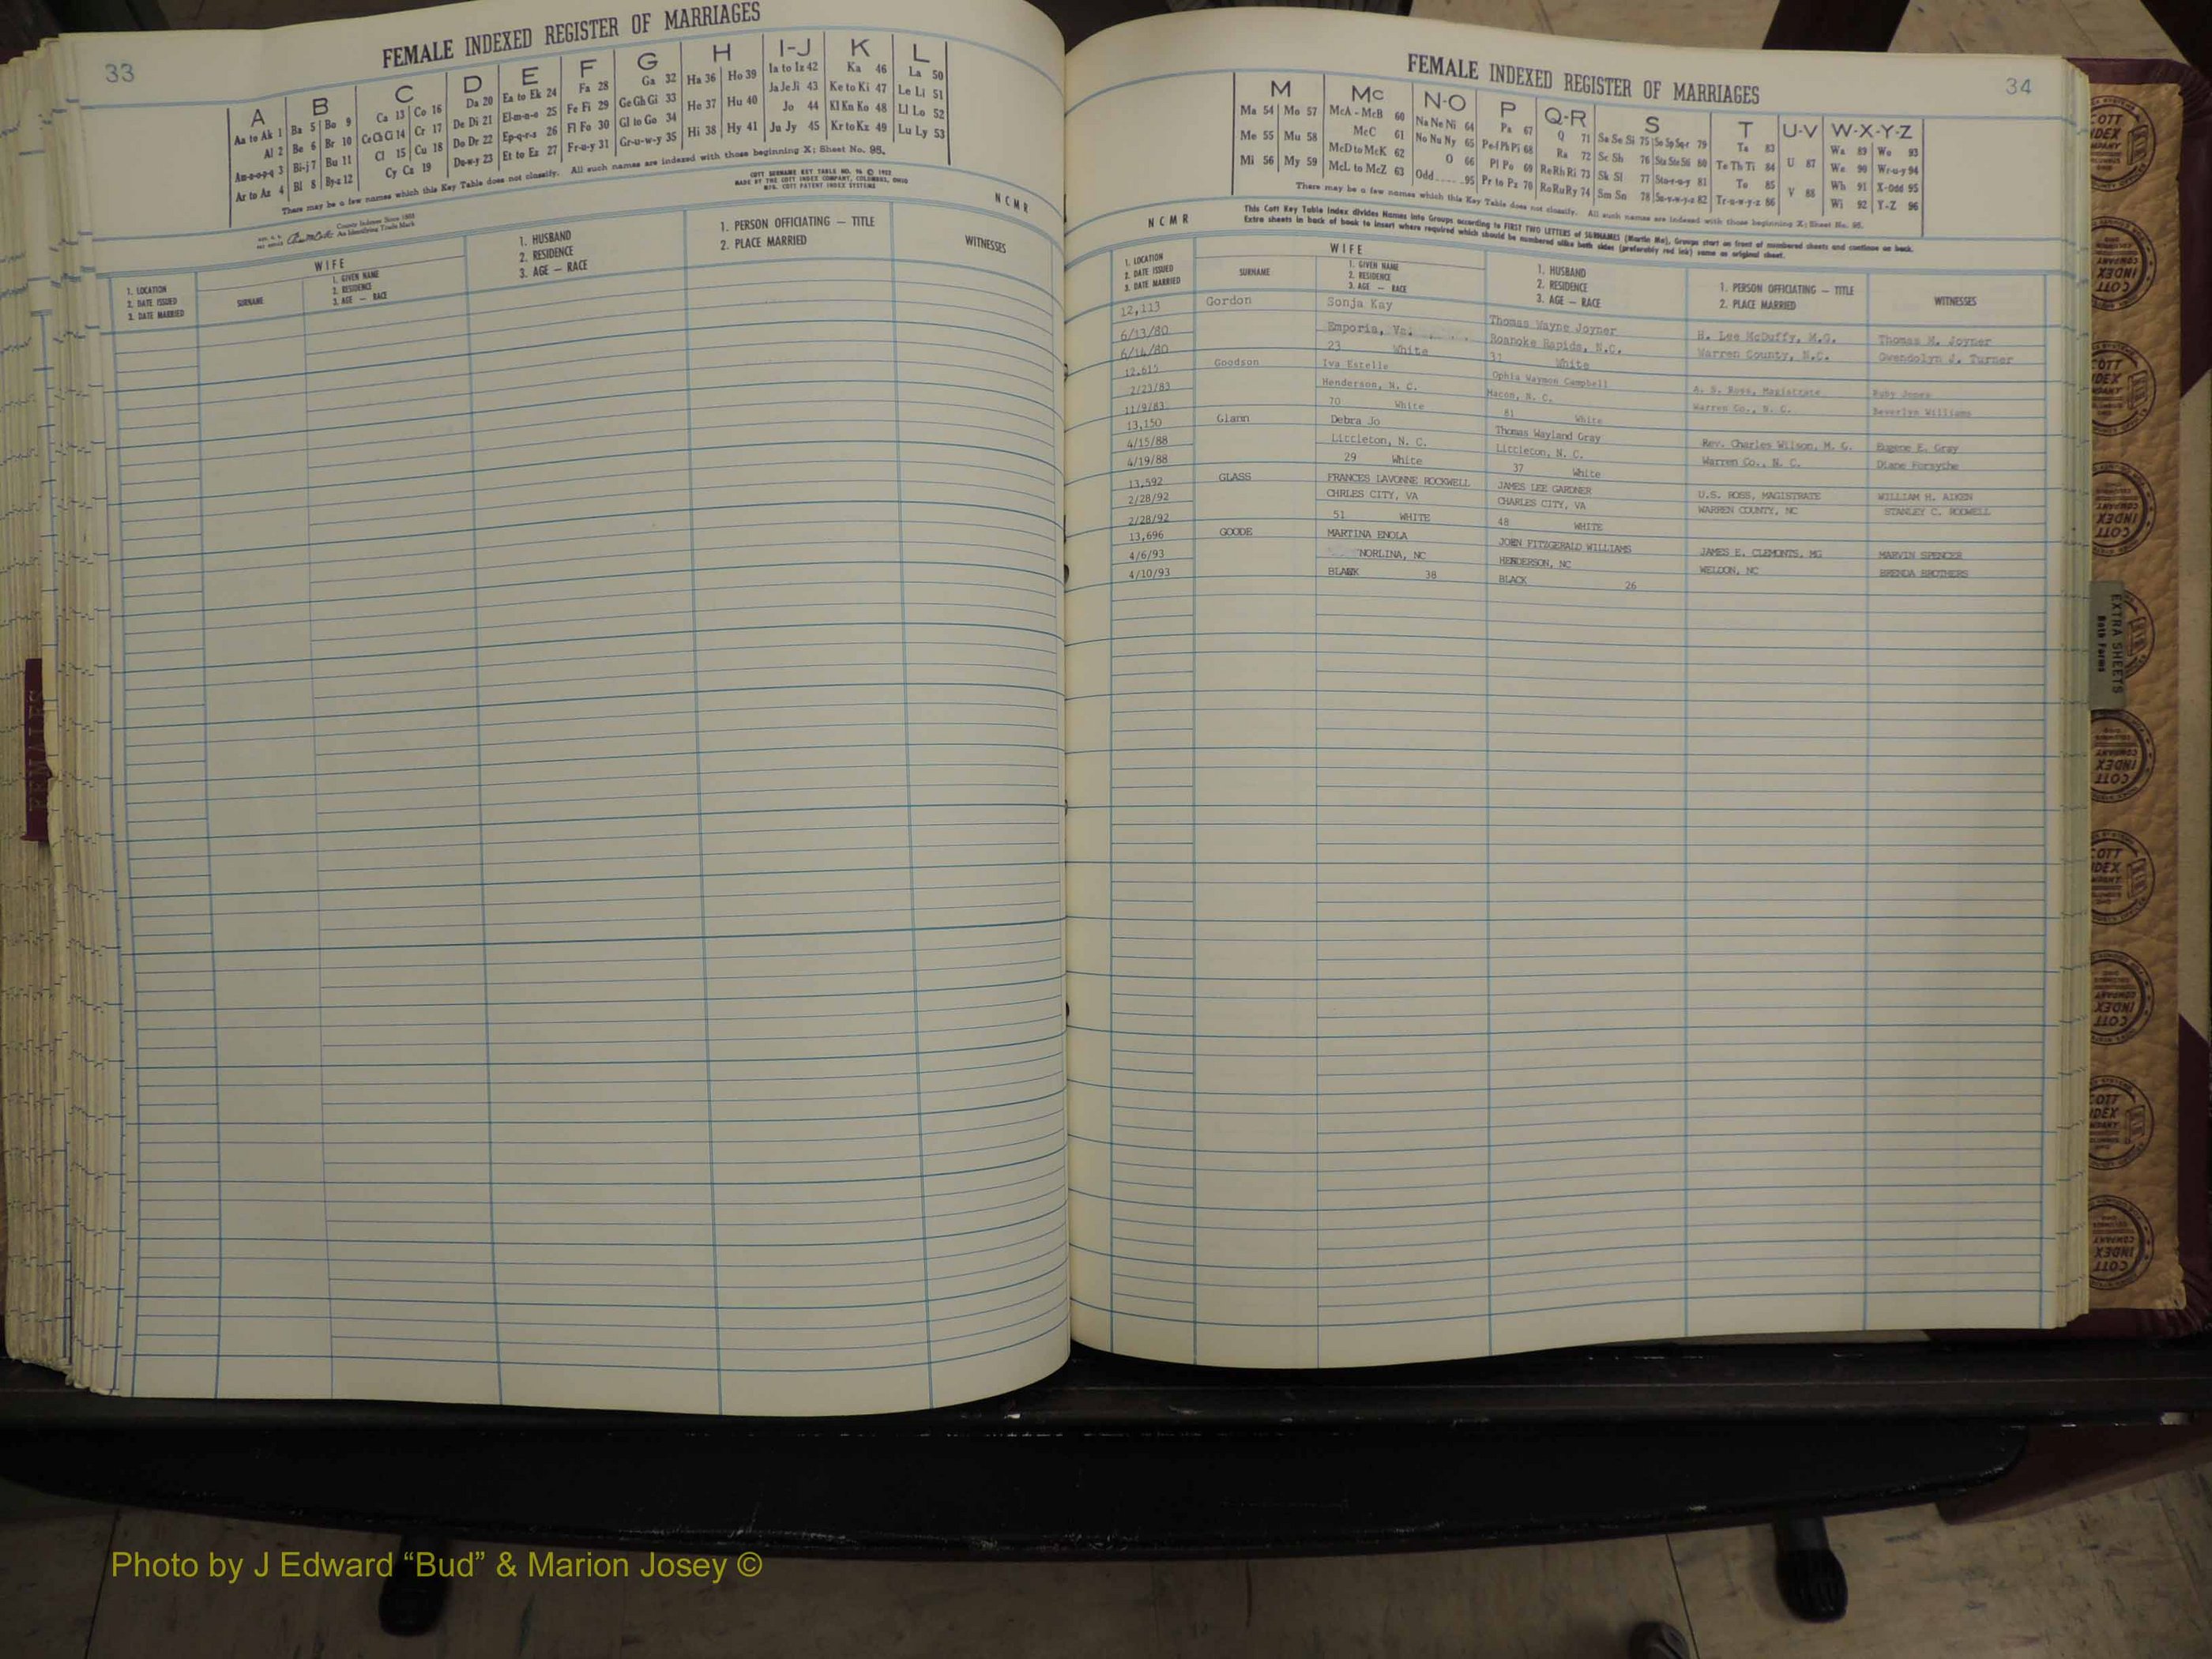 33
FEMALE INDEXED REGISTER OF MARRIAGES
A B C D E F G H I-J K L
Aa to Ak 1 Ba 5 Bo 9 Ca 13 Co 16 Da 20 Ea to Ek 24 Fa 28 Ga 32 Ha 36 Ho 39 Ia to Iz 42 Ka 46 La 50
Al 2 Be 6 Br 10 Ce Ch Ci 14 Cr 17 De Di 21 El-m-n-o 25 Fe Fi 29 Ge Gh Gi 33 He 37 Hu 40 Ja Je Ji 43 Ke to Ki 47 Le Li 51
Am-n-o-p-q 3 Bi-j 7 Bu 11 Cl 15 Cu 18 Do Dr 22 Ep-q-r-s 26 Fl Fo 30 Gl to Go 34 Hi 38 Hy 41 Jo 44 Kl Kn Ko 48 Ll Lo 52
Ar to Az 4 Bl 8 By-z 12 Cy Cz 19 Du-w-y 23 Et to Ez 27 Fr-u-y 31 Gr-u-w-y 35 Ju Jy 45 Kr to Kz 49 Lu Ly 53
There may be a few names which this Key Table does not classify. All such names are indexed with those beginning X; Sheet No. 95.
COTT SURNAME KEY TABLE NO. 96 © 1952
MADE BY THE COTT INDEX COMPANY, COLUMBUS, OHIO
MFG. COTT PATENT INDEX SYSTEMS
County Indexes Since 1888
An Identifying Trade Mark
N C M R
1. LOCATION
2. DATE ISSUED
3. DATE MARRIED
WIFE
SURNAME
1. GIVEN NAME
2. RESIDENCE
3. AGE — RACE
1. HUSBAND
2. RESIDENCE
3. AGE — RACE
1. PERSON OFFICIATING — TITLE
2. PLACE MARRIED
WITNESSES
FEMALE INDEXED REGISTER OF MARRIAGES
34
M Mc N-O P Q-R S T U-V W-X-Y-Z
Ma 54 Mo 57 McA - McB 60 Na Ne Ni 64 Pa 67 Q 71 Sa Se Si 75 So Sp Sq-r 79 Ta 83 Wa 89 Wo 93
Me 55 Mu 58 McC 61 No Nu Ny 65 Pe-f Ph Pi 68 Ra 72 Sc Sh 76 Sta Ste Sti 80 Te Th Ti 84 U 87 We 90 Wr-u-y 94
Mi 56 My 59 McD to McK 62 O 66 Pl Po 69 Re Rh Ri 73 Sk Sl 77 Sto-r-u-y 81 To 85 V 88 Wh 91 X-Odd 95
McL to McZ 63 Odd 95 Pr to Pz 70 Ro Ru Ry 74 Sm Sn 78 Su-v-w-y-z 82 Tr-u-w-y-z 86 Wi 92 Y-Z 96
There may be a few names which this Key Table does not classify. All such names are indexed with those beginning X; Sheet No. 95.
This Cott Key Table Index divides Names into Groups according to FIRST TWO LETTERS of SURNAMES (Martin Ma), Groups start on front of numbered sheets and continue on back.
Extra sheets in back of book to insert where required which should be numbered alike both sides (preferably red ink) same as original sheet.
N C M R
1. LOCATION
2. DATE ISSUED
3. DATE MARRIED
WIFE
SURNAME
1. GIVEN NAME
2. RESIDENCE
3. AGE — RACE
1. HUSBAND
2. RESIDENCE
3. AGE — RACE
1. PERSON OFFICIATING — TITLE
2. PLACE MARRIED
WITNESSES
12,113 Gordon Sonja Kay Thomas Wayne Joyner H. Lee McDuffy, M.G. Thomas M. Joyner
6/13/80 Emporia, Va. Roanoke Rapids, N.C. Warren County, N.C. Gwendolyn J. Turner
6/14/80 23 White 31 White
12,615 Goodson Iva Estelle Ophia Waymon Campbell A. S. Ross, Magistrate Ruby Jones
2/23/83 Henderson, N. C. Macon, N. C. Warren Co., N. C. Beverlyn Williams
11/9/83 70 White 81 White
13,150 Glann Debra Jo Thomas Wayland Gray Rev. Charles Wilson, M. G. Eugene E. Gray
4/15/88 Littleton, N. C. Littleton, N. C. Warren Co., N. C. Diane Forsythe
4/19/88 29 White 37 White
13,592 GLASS FRANCES LAVONNE ROCKWELL JAMES LEE GARDNER U.S. ROSS, MAGISTRATE WILLIAM H. AIKEN
2/28/92 CHRLES CITY, VA CHARLES CITY, VA WARREN COUNTY, NC STANLEY C. ROOWELL
2/28/92 51 WHITE 48 WHITE
13,696 GOODE MARTINA ENOLA JOHN FITZGERALD WILLIAMS JAMES E. CLEMONTS, MG MARVIN SPENCER
4/6/93 NORLINA, NC HENDERSON, NC WELDON, NC BRENDA BROTHERS
4/10/93 BLACK 38 BLACK 26
EXTRA SHEETS
Both Forms
COTT INDEX COMPANY
Photo by J Edward “Bud” & Marion Josey ©